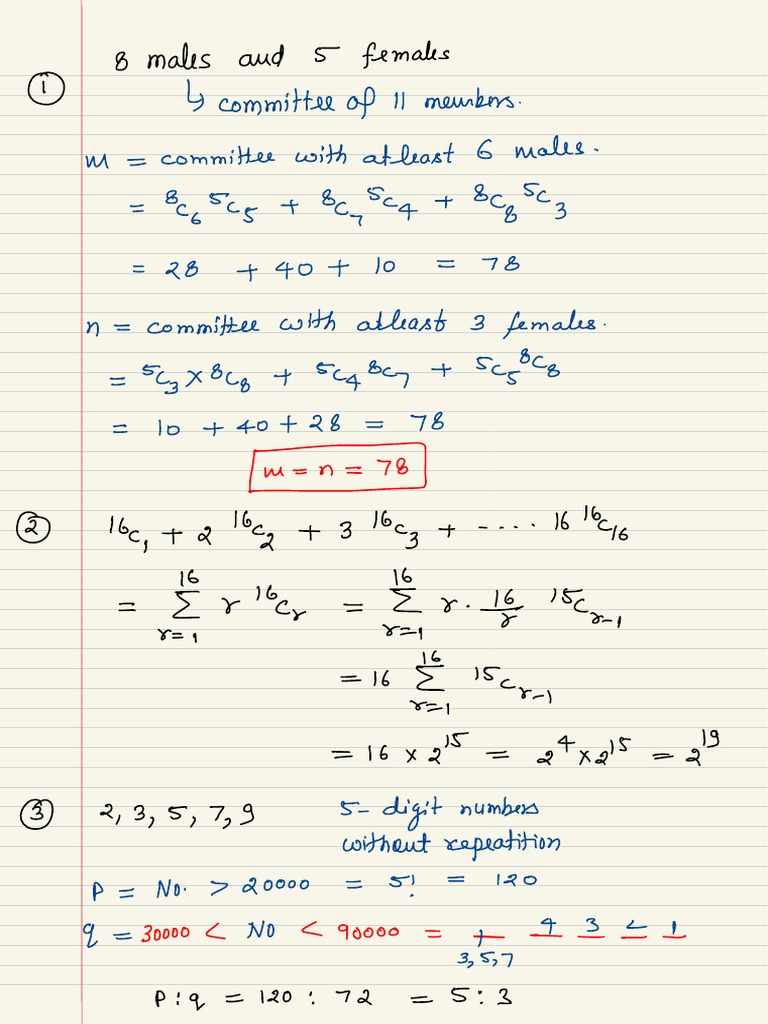 ① 8 males and 5 females
↳ committee of 11 members.
m = committee with atleast 6 males.
= ⁸C₆ ⁵C₅ + ⁸C₇ ⁵C₄ + ⁸C₈ ⁵C₃
= 28 + 40 + 10 = 78
n = committee with atleast 3 females.
= ⁵C₃ × ⁸C₈ + ⁵C₄ ⁸C₇ + ⁵C₅ ⁸C₈
= 10 + 40 + 28 = 78
m = n = 78
② ¹⁶C₁ + 2 ¹⁶C₂ + 3 ¹⁶C₃ + ---- 16 ¹⁶C₁₆
= 16 Σ r=1 r ¹⁶Cᵣ = 16 Σ r=1 r . 16/r ¹⁵Cᵣ₋₁
= 16 16 Σ r=1 ¹⁵Cᵣ₋₁
= 16 × 2¹⁵ = 2⁴ × 2¹⁵ = 2¹⁹
③ 2, 3, 5, 7, 9 5- digit numbers
without repeatition
P = No. > 20000 = 5! = 120
q = 30000 < NO < 90000 = 4 3 2 1
3, 5, 7
P : q = 120 : 72 = 5 : 3